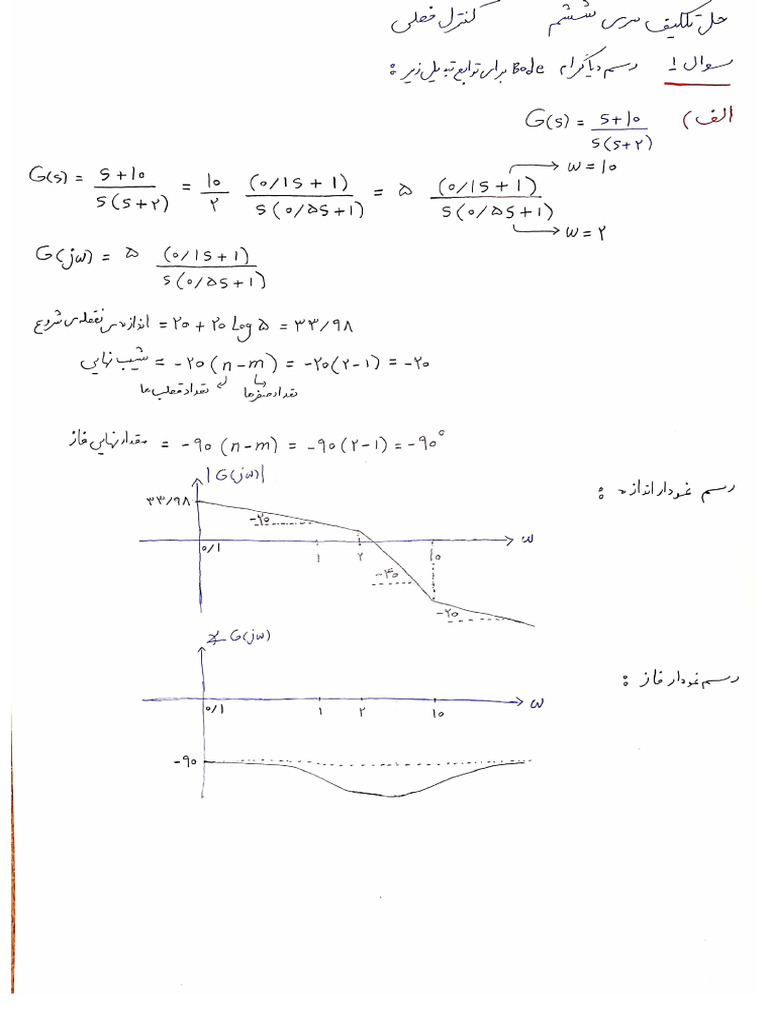 حل تکلیف سری ششم کنترل خطی
سوال ۱ رسم دیاگرام Bode برای توابع تبدیل زیر :
الف) G(s) = s+۱۰ / s(s+۲)
G(s) = s+۱۰ / s(s+۲) = ۱۰/۲ (۰/۱s+۱) / s(۰/۵s+۱) = ۵ (۰/۱s+۱) / s(۰/۵s+۱)
→ ω=۱۰
→ ω=۲
G(jω) = ۵ (۰/۱s+۱) / s(۰/۵s+۱)
اندازه‌ی نقطه‌ی شروع = ۲۰+۲۰ Log ۵ = ۳۳/۹۸
شیب نهایی = -۲۰(n-m) = -۲۰(۲-۱) = -۲۰
تعداد صفرها تعداد قطب ها
مقدار نهایی فاز = -۹۰(n-m) = -۹۰(۲-۱) = -۹۰°
رسم نمودار اندازه :
|G(jω)|
۳۳/۹۸
-۲۰
۰/۱ ۱ ۲ ۱۰ ω
-۴۰
-۲۰
رسم نمودار فاز :
∡ G(jω)
۰/۱ ۱ ۲ ۱۰ ω
-۹۰